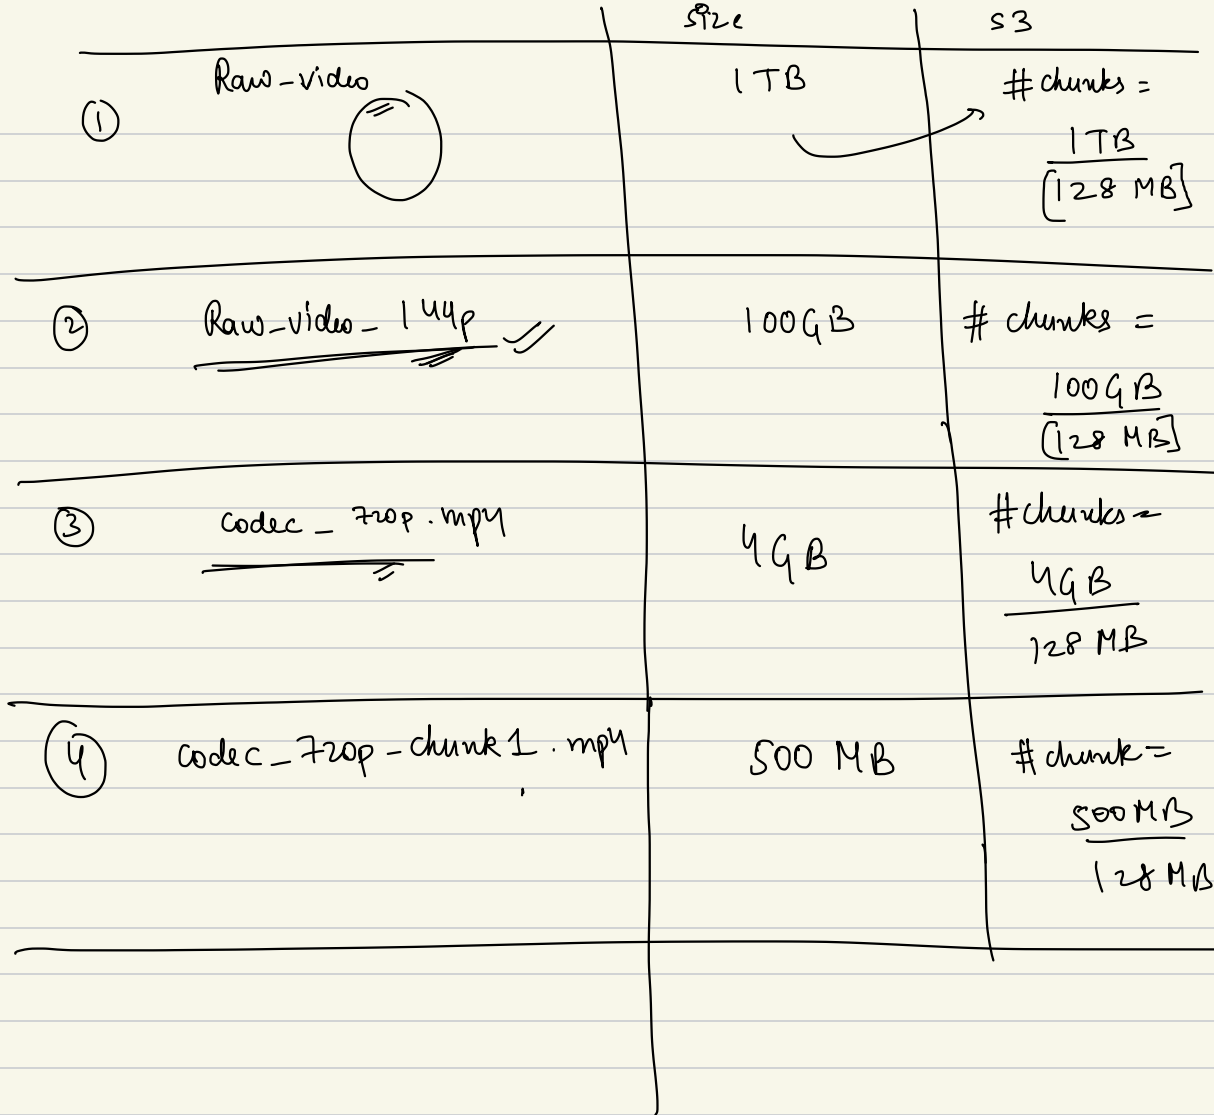 size s3
Raw_video 1 TB # chunks =
① 1 TB
[128 MB]
② Raw_video_144p 100GB # chunks =
100GB
[128 MB]
③ codec_720p.mp4 4GB # chunks=
4GB
128 MB
④ codec_720p_chunk1.mp4 500 MB # chunk=
500MB
128 MB